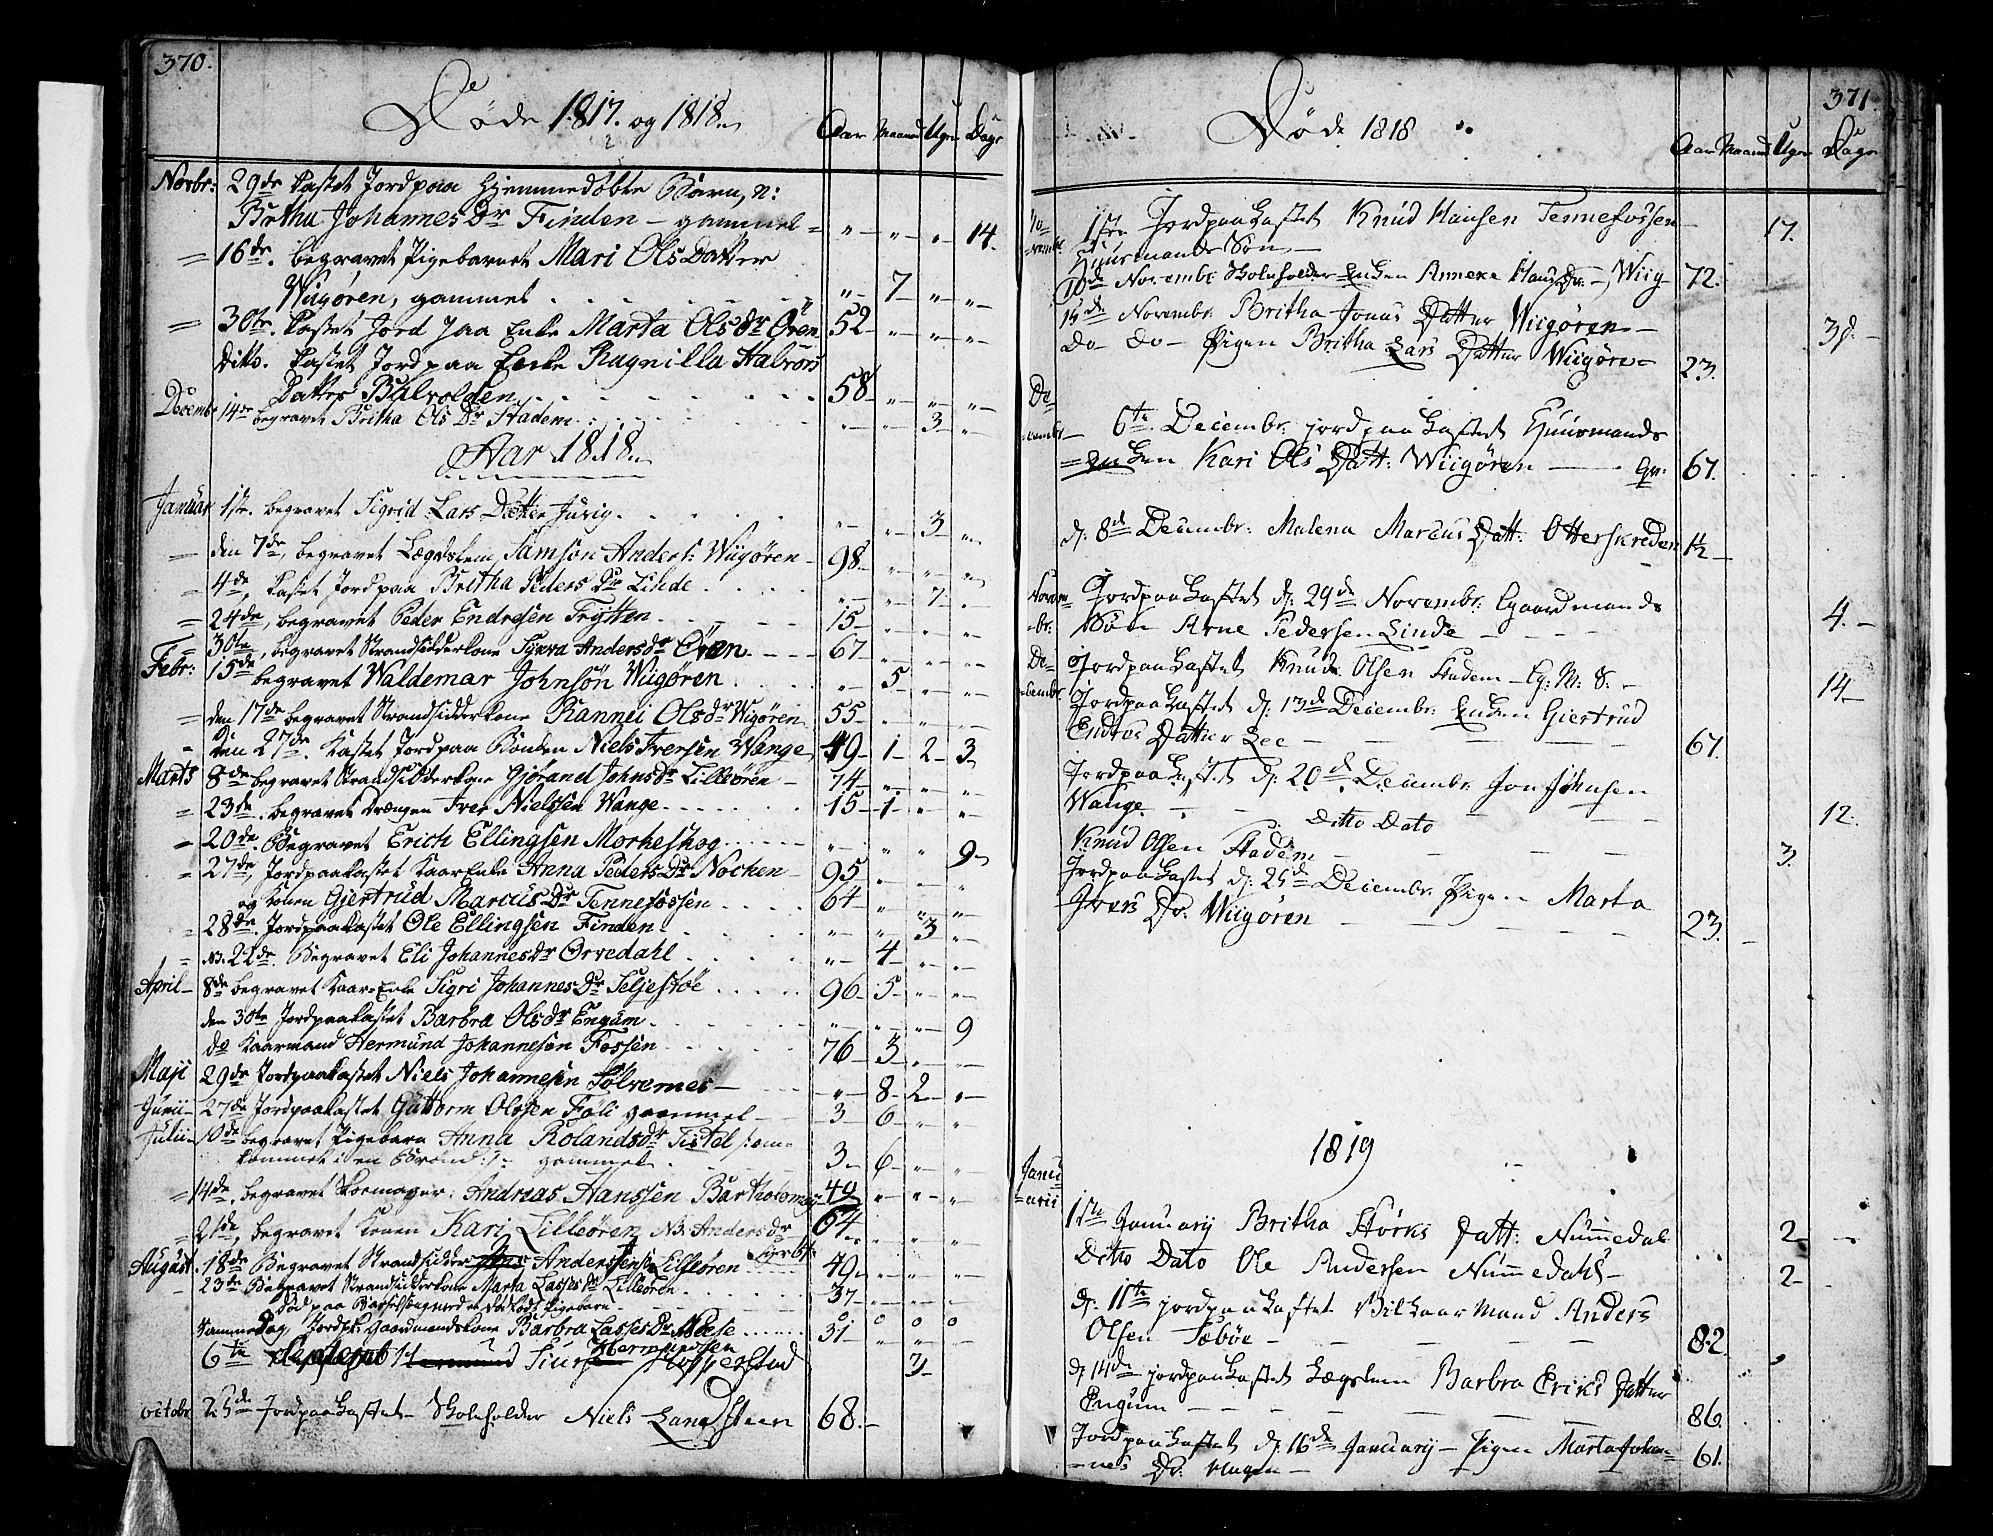 370.
Døde 1817. og 1818.
Aar Maaned Uger Dage
Novbr: 29de kastet Jord paa hjemmedøbte Børn, n:
Brtha Johannes Dr Finden – gammel = " " " 14.
= 16de. begravet Pigebarnet Mari Ols Datter
Wiigøren, gammel . . . . " 7 " "
= 30te. kastet Jord paa Enke Marta Olsdr Øren 52 " " "
Dito. kastet Jord paa Enke Ragnilla Halvors
Datter Bulvolden . . . . 58 " " "
Decembr 14de begravet Britha Ols Dr Stadem . . . " " 3 "
Aar 1818.
Januar 1ste. begravet Sigrid Lars Datter . . . . " " 3 "
– den 7de, begravet Lægdslem Samson Anders: Wiigøren – 98 " " "
= 4de, kastet Jord paa Britha Peders Dr Linde . . . . " " 7 "
= 24de, begravet Peder Endresen Frytten . . . . 15 " " "
= 30te, begravet Strandsidderkone Synva Andersdr Øren – – 67 " " "
Febr: 15de begravet Waldemar Johnsøn Wiigøren . . . " 5 " "
= den 17de begravet Strandsidderkone Rannei Olsdr Wigøren 55 " " "
= den 27de. kastet Jord paa Bonden Niels Iversen Wange 49 1 2 3
Marts 8de begravet Strandsidderkone Gjørand Johnsdr Lilleøren – 74 " " "
= 23de. begravet Drængen Iver Nielssen Wange . . . . 15 1 " "
= 20de. Begravet Erich Ellingsen Morkeskog . . . . " " " 9
= 27de, Jordpaakastet Kaar Enke Anna Peders Dr Nocken – 95 " " "
og Konen Gjertrud Marcus Dr Tennefossen . . . . 64 " " "
= 28de. Jordpaakastet Ole Ellingsen Finden . . . . " " 3 "
= NB. 22de. Begravet Eli Johannes Dr Ørvedahl . . . . " 4 " "
April – 8de begravet Kaar-Enke Sigri Johannes Dr Seljestøe . . . . 96 5 " "
den 30te Jordpaakastet Barbra Olsdr Engum . . . . " " " 9
do Kaarmand Hermund Johannesen Fossen . . . . 76 3 " "
Maji 29de Jordpaakastet Niels Johannesen Sølvernes – " 8 2 "
Junii – 27de Jordpaakastet Guttorm Olssen Føli gammel – 3 6 " "
Julii – 10de begravet Pigebarn Anna Rolandsdr Tistel /: om=
kommet i en Brønd :/ gammel . . 3 6 " "
= 14de. begravet Skomager: Andreas Hanssen Bartholomay 49 " " "
= 21de, begravet Konen Kari Lilleøren NB. Andersdr 64 " " "
August. 18de Begravet Strandsidder Anderssen Lilleøren 49 " " "
– 23de Begravet Strandsidderkone Marta Lasses Dr Lilleøren . . . . 37 " " "
død paa Barselseng med et dødfødt Pigebarn . . . 0 0 0 0
samme Dag, Jordpk. Gaardmandskone Barbra Lasses Dr Neese . . . . 31 " " "
6te Septemb Hermund Siur Hermundsen Hopperstad 3
octobr 25de Jordpaakastet Skoleholder Niels Landsteen 68.
371.
Døde 1818
Aar Maaned Uger Dage
No=
vembr. 1ste Jordpaakastet Knud Hansen Tennefossen – 17.
Huusmands Søn –
10de Novembr Skoleholder Enken Anneke Hans Dr. – Wiig 72.
15de Novembr Britha Jonas Datter Wiigøren – 38.
Do – Do – Pigen Britha Lars Datter Wiigøre – 23.
De=
cembr – 6te. Decembr. jordpaakastet Huusmands
= enken Kari Ols Datt: Wiigøren — . gr. 67.
d: 8de Decembr: Malena Marcus Datt: Otterskreden 1½
Novem=
br: Jordpaakastet d: 29de Novembr: Gaardmands
Søn Arne Pedersen Linde – – – 4.
De=
cembr Jordpaakastet Knud Olsen Stadem – G: M: S. – 14
Jordpaakastet d: 13de Decembr. Enken Giertrud
Endres Datter Lee – – – 67.
Jordpaakastet d: 20de Decembr. Jon Johnsen
Wange – – – 12.
Ditto Dato
Knud Olsen Stadem – – – 3.
Jordpaakastet d: 25de Decembr. Pigen Marta
Ivers Dr. Wiigøren – – – 23.
1819
Janu=
arii 1ste January Britha Størks Datt: Nummedal 2
Ditto Dato Ole Andersen Nummedahl – 2
d: 11te jordpaakastet Vilkaar Mand Anders
Olsen Sæbøe – – – 82
d: 14de jordpaakastet Lægslem Barbra Eriks Datter
Engum – – – 86.
Jordpaakastet d: 16de January – Pigen Marta Johan=
=nes Dr: Hugen – 61.